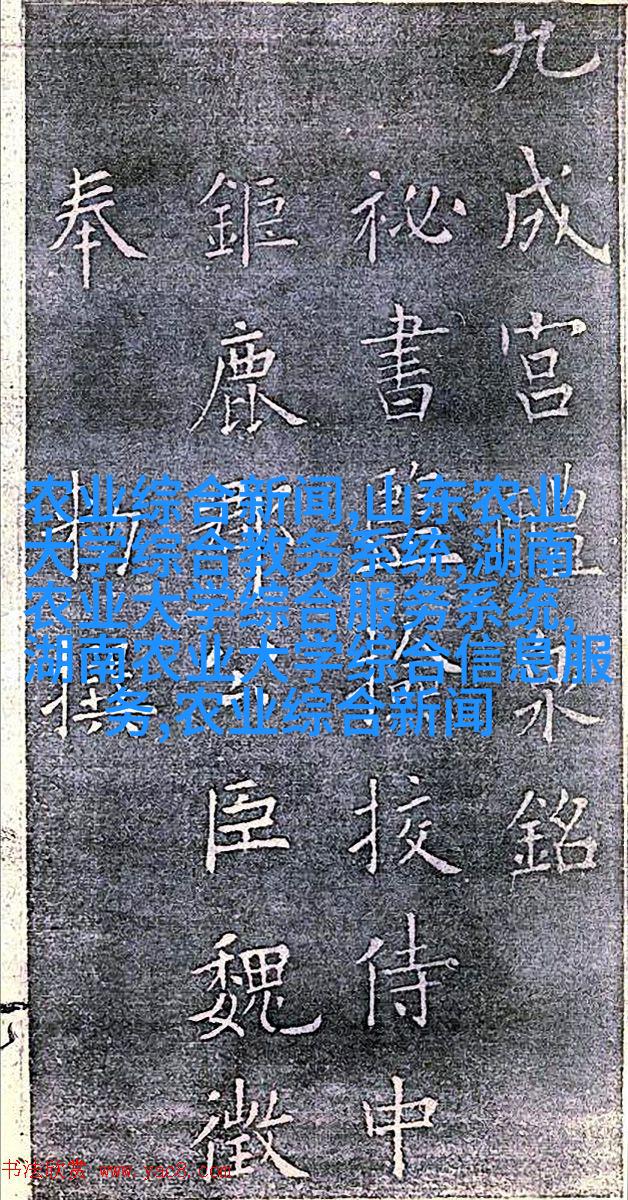 九成宫泉銘
祕書監挍侍中
鉅鹿臣魏徵
奉撰
农业综合新闻,山东农业
大学综合教务系统,湖南
农业大学综合服务系统,
湖南农业大学综合信息服
务,农业综合新闻
书法欣赏 www.yac8.com